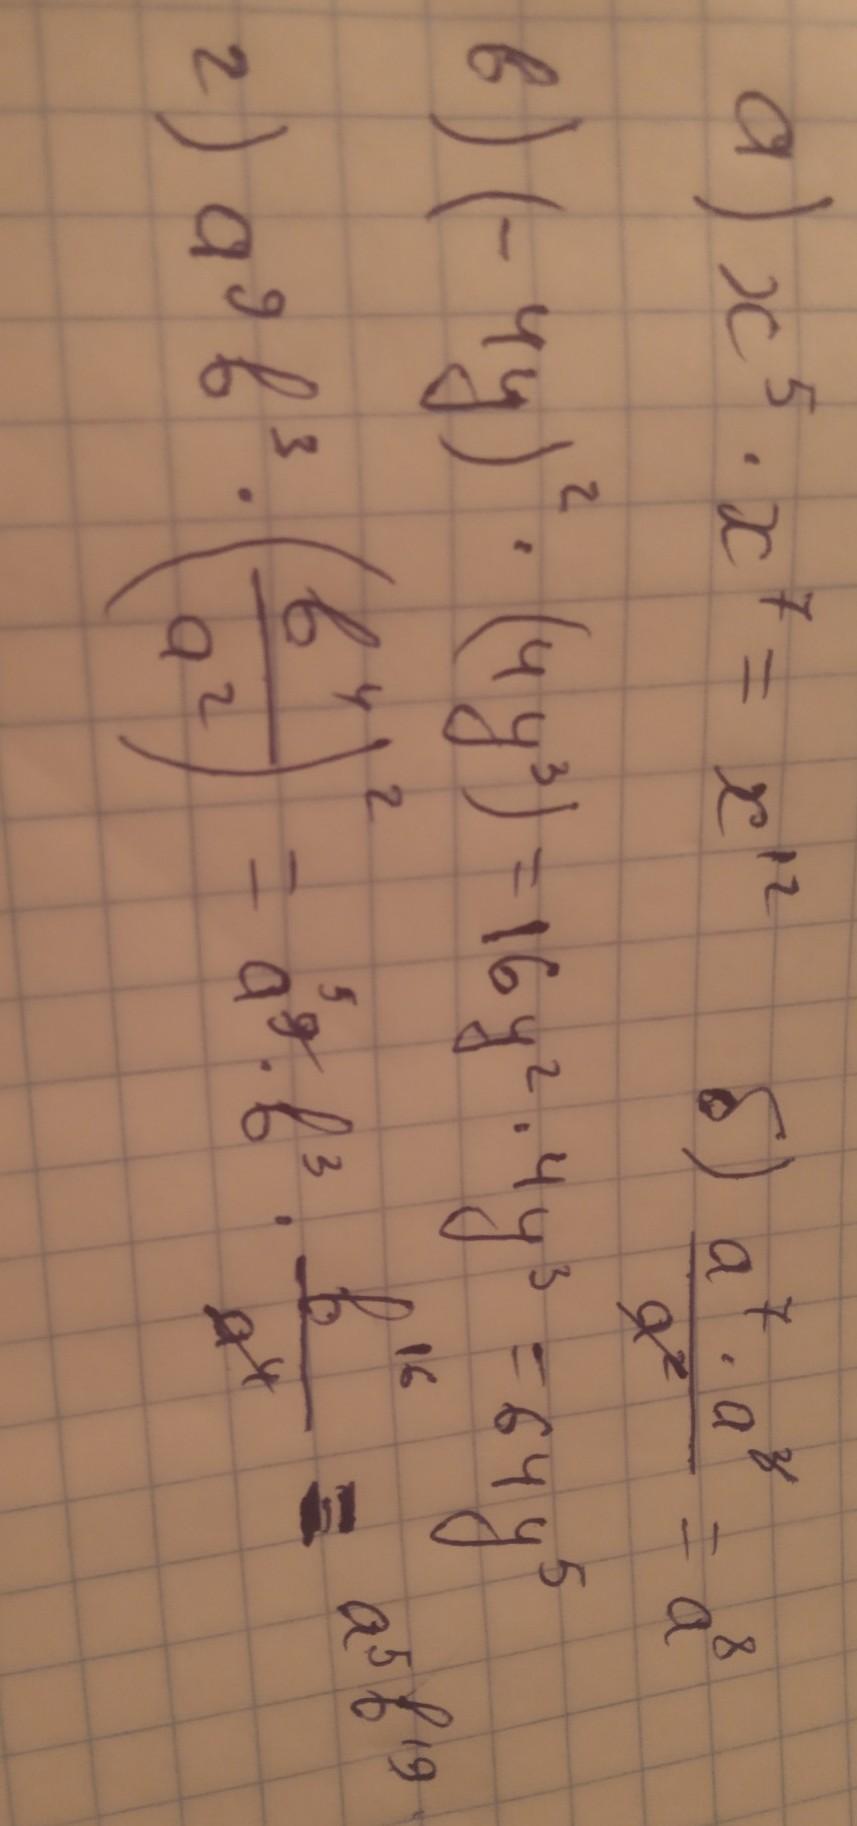 а) x⁵ · x⁷ = x¹² б) (a⁷ · a³)/a² = a⁸
в) (-4y)² · (4y³) = 16y² · 4y³ = 64y⁵
г) a⁹b³ · (b⁴/a²)² = a⁹ ⁵ · b³ · b¹⁶/a⁴ = a⁵b¹⁹